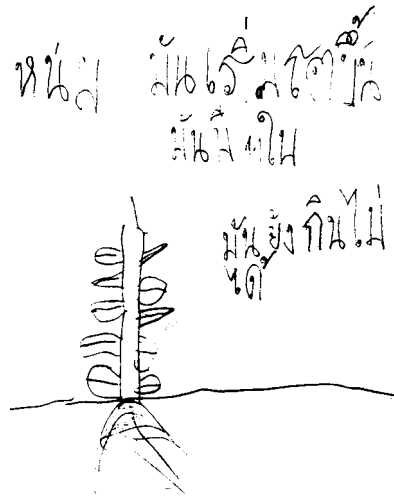 หนุ่ม มันเริ่มโตขึ้น
มันมี ใบ
มันยังกินไม่
ได้